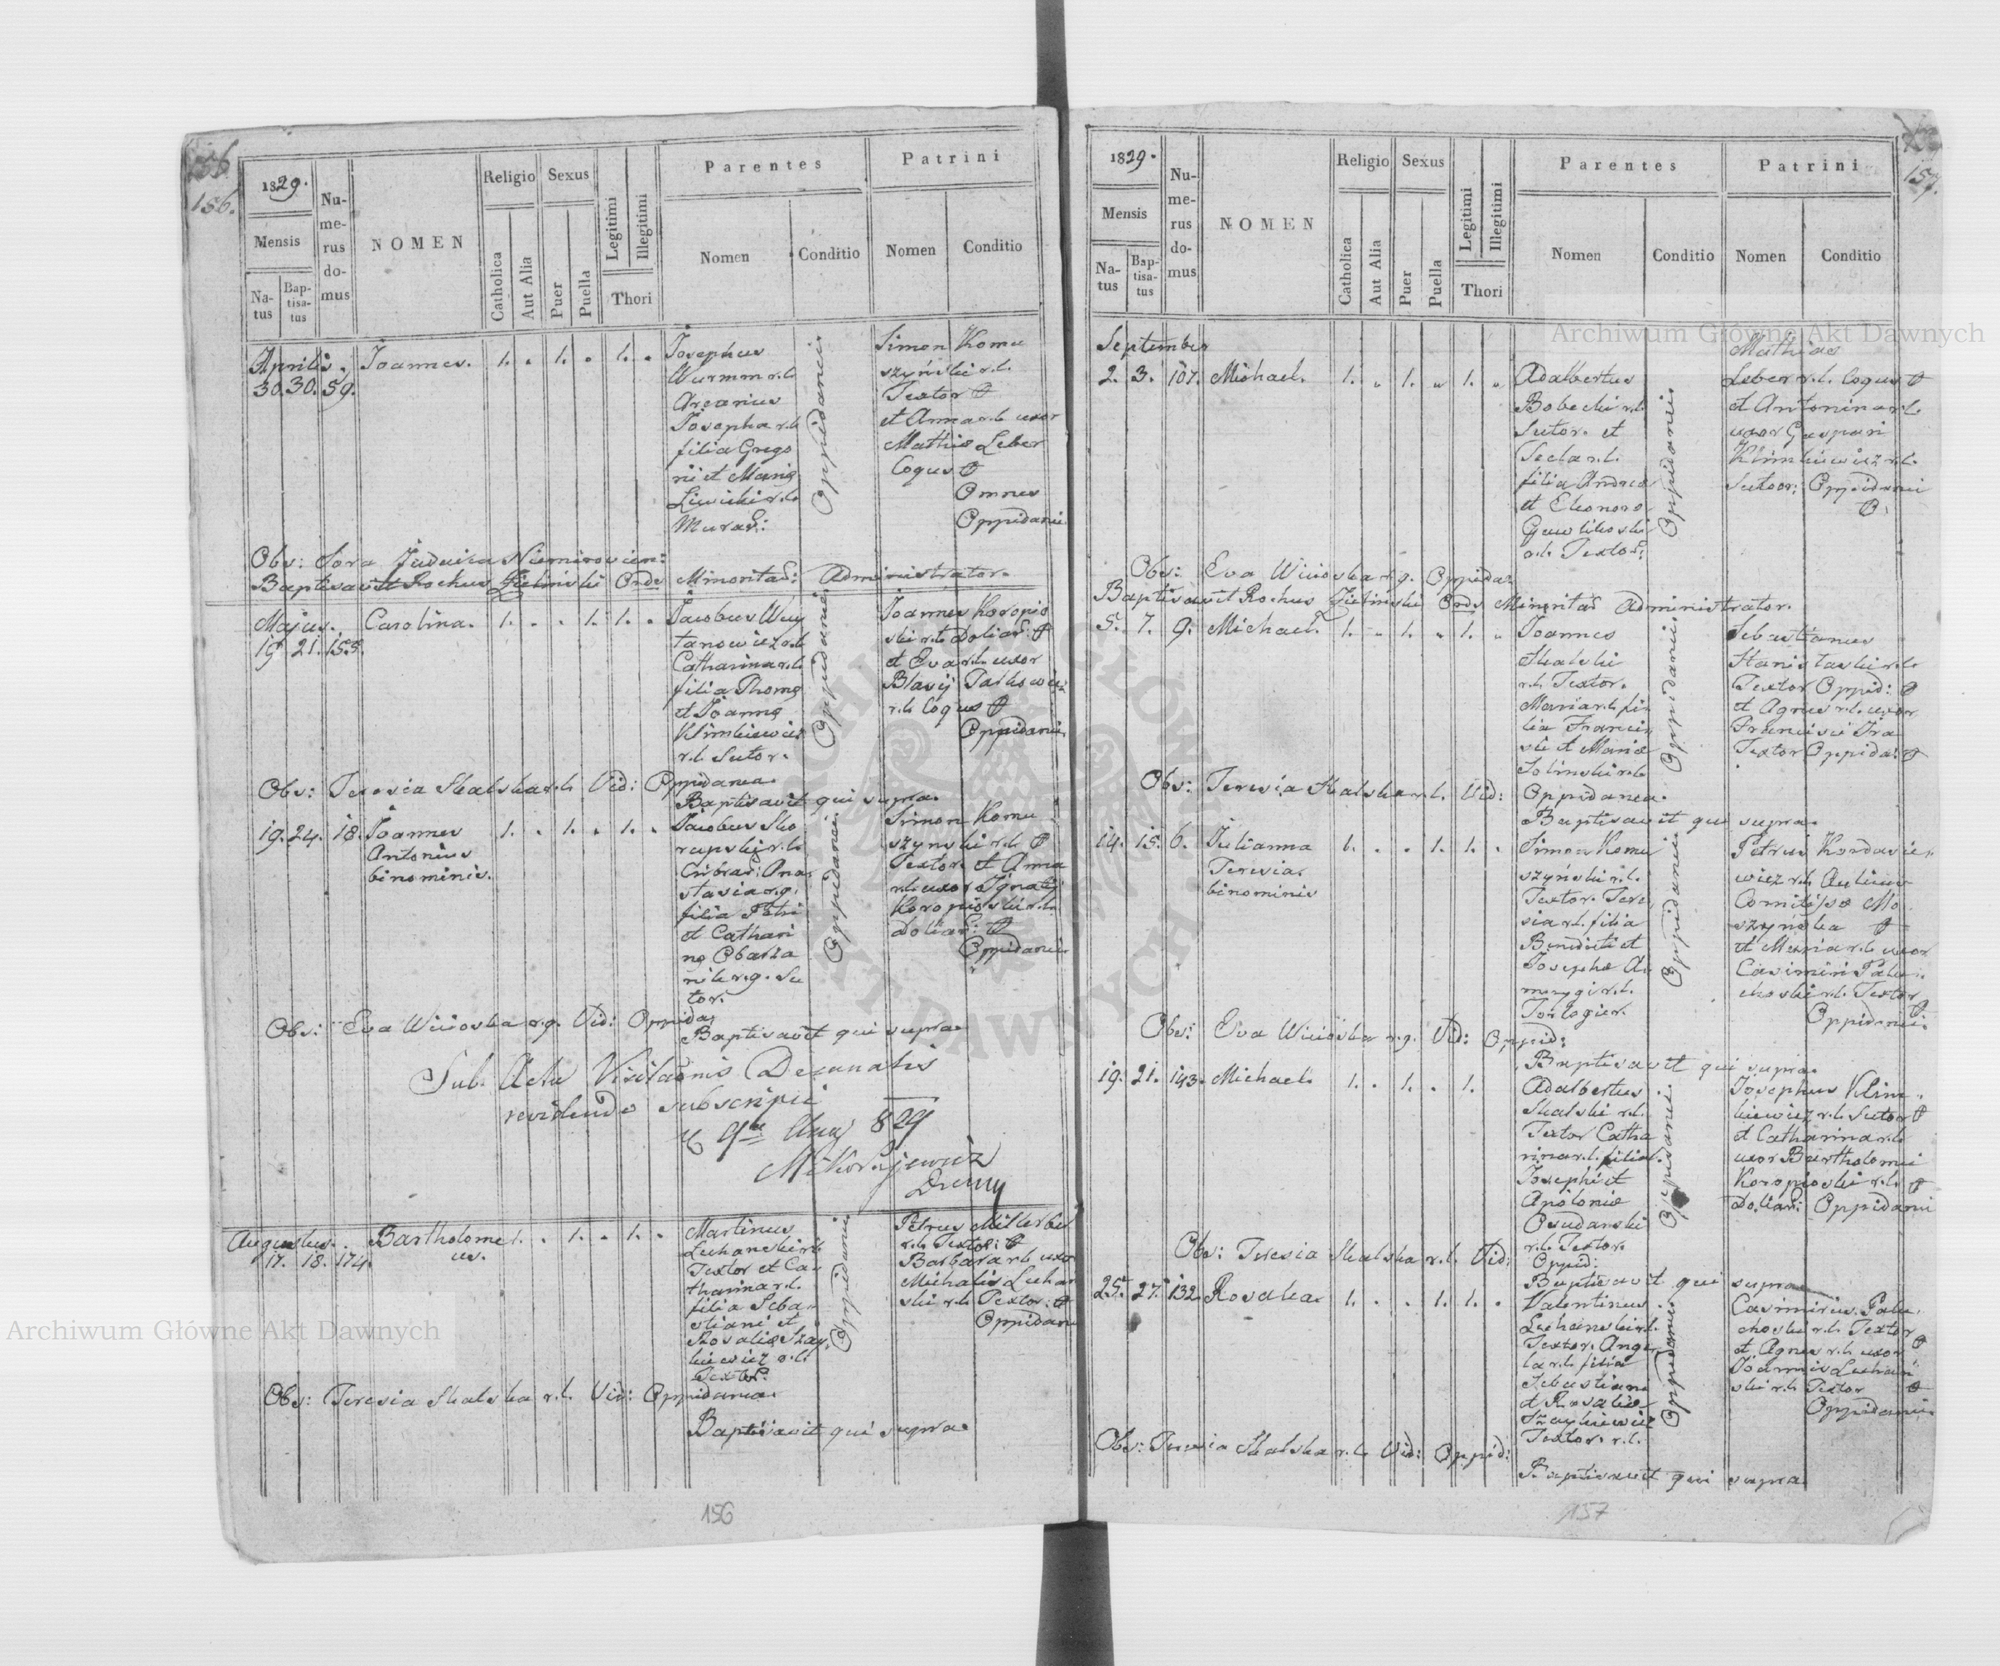 156.
156.
1829.
Mensis
Na-
tus
Bap-
tisa-
tus
Nu-
me-
rus
do-
mus
NOMEN
Religio
Catholica
Aut Alia
Sexus
Puer
Puella
Legitimi
Illegitimi
Thori
Parentes
Nomen
Conditio
Patrini
Nomen
Conditio
Aprilis.
30. 30. 59.
Joannes.
1. . 1. . 1. .
Josephus
Wurmm r.l.
Arcarius
Josepha r.l.
filia Grego
rii et Maria
Murar:
Oppidanei
Simon Komu
szyński r.l.
Textor
et Anna r.l. uxor
Mathiæ Leber
Coqus
Omnes
Oppidanei
Baptisavit Rochus Zieliński Ords Minoritar: Administrator.
Majus.
19. 21. 155.
Carolina.
1. . . 1. 1. .
Jacobus Woy
tanowicz r.l.
Catharina r.l.
filia Thomæ
et Joannæ
Klimkiewicz
r.l. Sutor.
Oppidanei
Joannes Koropio
ski r.l. Doliar:
et Eva r.l. uxor
Blasij
r.l. Coqus
Oppidanei
Obs: Teresia Skalska r.l. Vid: Oppidanea.
Baptisavit qui supra.
19. 24. 18.
Joannes
Antonius
binominis.
1. . 1. . 1. .
Jacobus Sko
rupski r.l.
Cribrar: Ana
stasia r.g.
filia Petri
et Cathari
næ
nik r.g. Su
tor.
Oppidanei
Simon Komu
szynski r.l.
Textor. et Anna
r.l. uxor Ignatij
Koropioski r.l.
Doliar:
Oppidanei
Obs: Eva Wicioska r.g. Vid: Oppida
Baptisavit qui supra
Sub Actu Visitaonis Decanalis
revidendo subscripsi
829
Augustus.
17. 18. 174.
Bartholome
us.
1. . 1. . 1. .
Martinus
Luchanski r.l.
Textor et Ca
tharina r.l.
filia Seba
stiani et
Rosaliæ Szay
kiewicz r.l.
Textor.
Oppidanei
Petrus
r.l. Textor:
Barbara r.l. uxor
Michalis Luchan
ski r.l. Textor:
Oppidanei
Obs: Teresia Skalska r.l. Vid: Oppidanea.
Baptisavit qui supra
156
157.
1829.
Mensis
Na-
tus
Bap-
tisa-
tus
Nu-
me-
rus
do-
mus
NOMEN
Religio
Catholica
Aut Alia
Sexus
Puer
Puella
Legitimi
Illegitimi
Thori
Parentes
Nomen
Conditio
Patrini
Nomen
Conditio
September
2. 3. 107.
Michael.
1. „ 1. „ 1. „
Adalbertus
Bobecki r.l.
Sutor. et
Tecla r.l.
filia Andreæ
et Elonoræ
Gawlikoski
r.l. Textor:
Oppidanei.
Mathias
Leber r.l. Coqus
et Antonina r.l.
uxor Gaspari
Klimkiewicz r.l.
Sutor: Oppidanei
Obs: Eva Wicioska r.g. Oppidan
Baptisavit Rochus Zieliński Ords Minoritar Administrator.
5. 7. 9.
Michael.
1. „ 1. „ 1. „
Joannes
Skalski
r.l. Textor.
Maria r.l. fi
lia Franci
sci et Mariæ
Solinski r.l.
Oppidanei.
Sebastianus
Stanisławski r.l.
Textor Oppid:
et Agnes r.l. uxor
Francisci
Textor Oppida:
Obs: Teresia Skalska r.l. Vid: Oppidanea.
Baptisavit qui supra.
14. 15. 6.
Julianna
Teresia
binominis
1. . . 1. 1. .
Simon Komu
szyński r.l.
Textor. Tere
sia r.l. filia
Benedicti et
Josephæ
Oppidanei
Petrus Kordasie
wicz r.l.
et Maria r.l. uxor
Casimiri Palu
choski r.l. Textor
Oppidanei.
Obs: Eva Wicióska r.g. Vid: Oppid:
Baptisavit qui supra
19. 21. 143.
Michael.
1. . 1. . 1.
Adalbertus
Skalski r.l.
Textor Catha
rina r.l. filia
Josephi et
Apoloniæ
r.l. Textor.
Oppidanei.
Josephus Klim
kiewicz r.l. Sutor
et Catharina r.l.
uxor Bartholomei
Koropioski r.l.
Doliar: Oppidanei
Obs: Teresia Skalska r.l. Vid: Oppid:
Baptisavit qui supra
25. 27. 132.
Rosalia.
1. . . 1. 1. .
Valentinus
Luchanski r.l.
Textor. Ange
la r.l. filia
Sebastiani
et Rosaliæ
Szaykiewicz
Textor. r.l.
Oppidanei
Casimirus Palu
choski r.l. Textor
et Agnes r.l. uxor
Joannis Luchan
ski r.l. Textor
Oppidanei.
Obs: Teresia Skalska r.l. Vid: Oppid:
Baptisavit qui supra
157
Archiwum Główne Akt Dawnych
Archiwum Główne Akt Dawnych